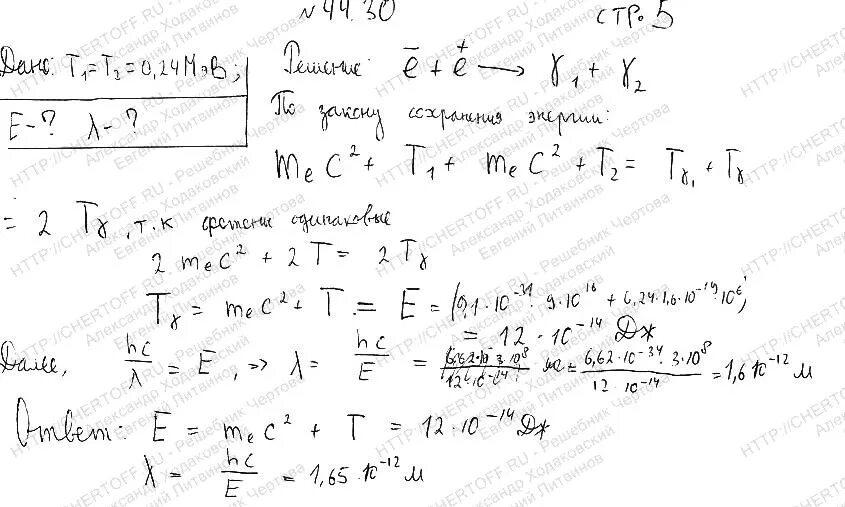 №44.30
стр. 5
Дано: T₁=T₂=0,24МэВ;
E-? λ-?
Решение: ē + e⁺ → γ₁ + γ₂
По закону сохранения энергии:
mₑc² + T₁ + mₑc² + T₂ = Tγ₁ + Tγ
= 2Tγ, т.к фотоны одинаковые
2mₑc² + 2T = 2Tγ
Tγ = mₑc² + T = E = (9,1·10⁻³¹·9·10¹⁶ + 0,24·1,6·10⁻¹⁹·10⁶)
= 12·10⁻¹⁴ Дж
Далее, hc/λ = E, => λ = hc/E = = 6,62·10⁻³⁴·3·10⁸/12·10⁻¹⁴ = 1,6·10⁻¹² м
Ответ: E = mₑc² + T = 12·10⁻¹⁴ Дж
λ = hc/E = 1,65·10⁻¹² м
HTTP://CHERTOFF.RU - Решебник Чертова
Александр Ходаковский
Евгений Литвинов